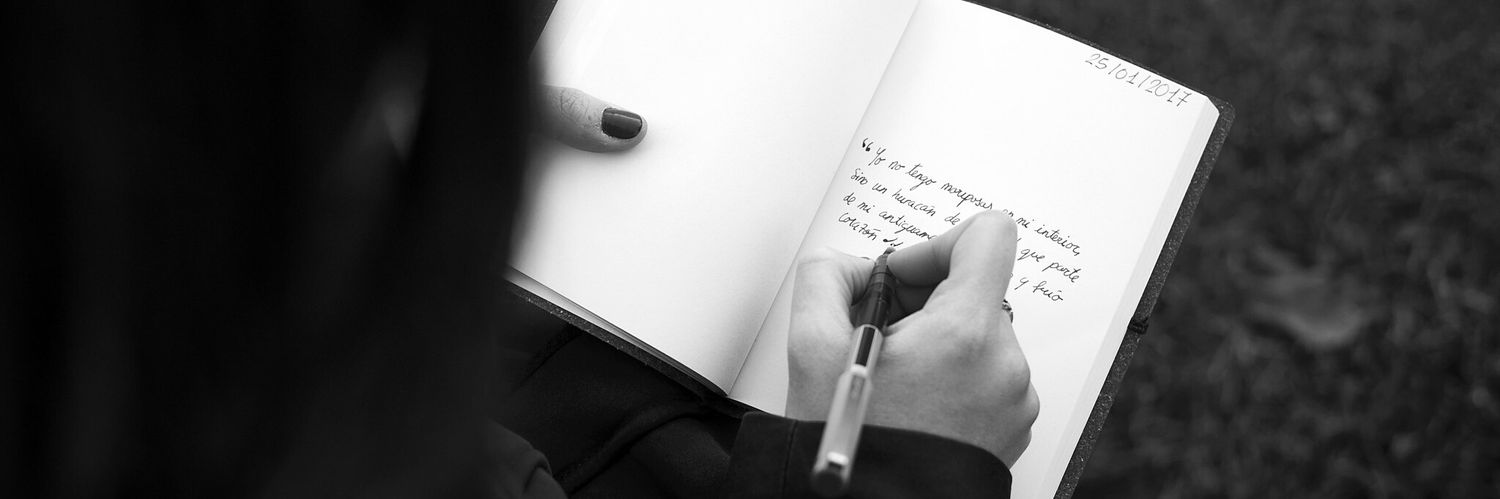 25/01/2017
“Yo no tengo mariposas en mi interior,
Sino un huracán de que parte
de mi y frío
corazón”